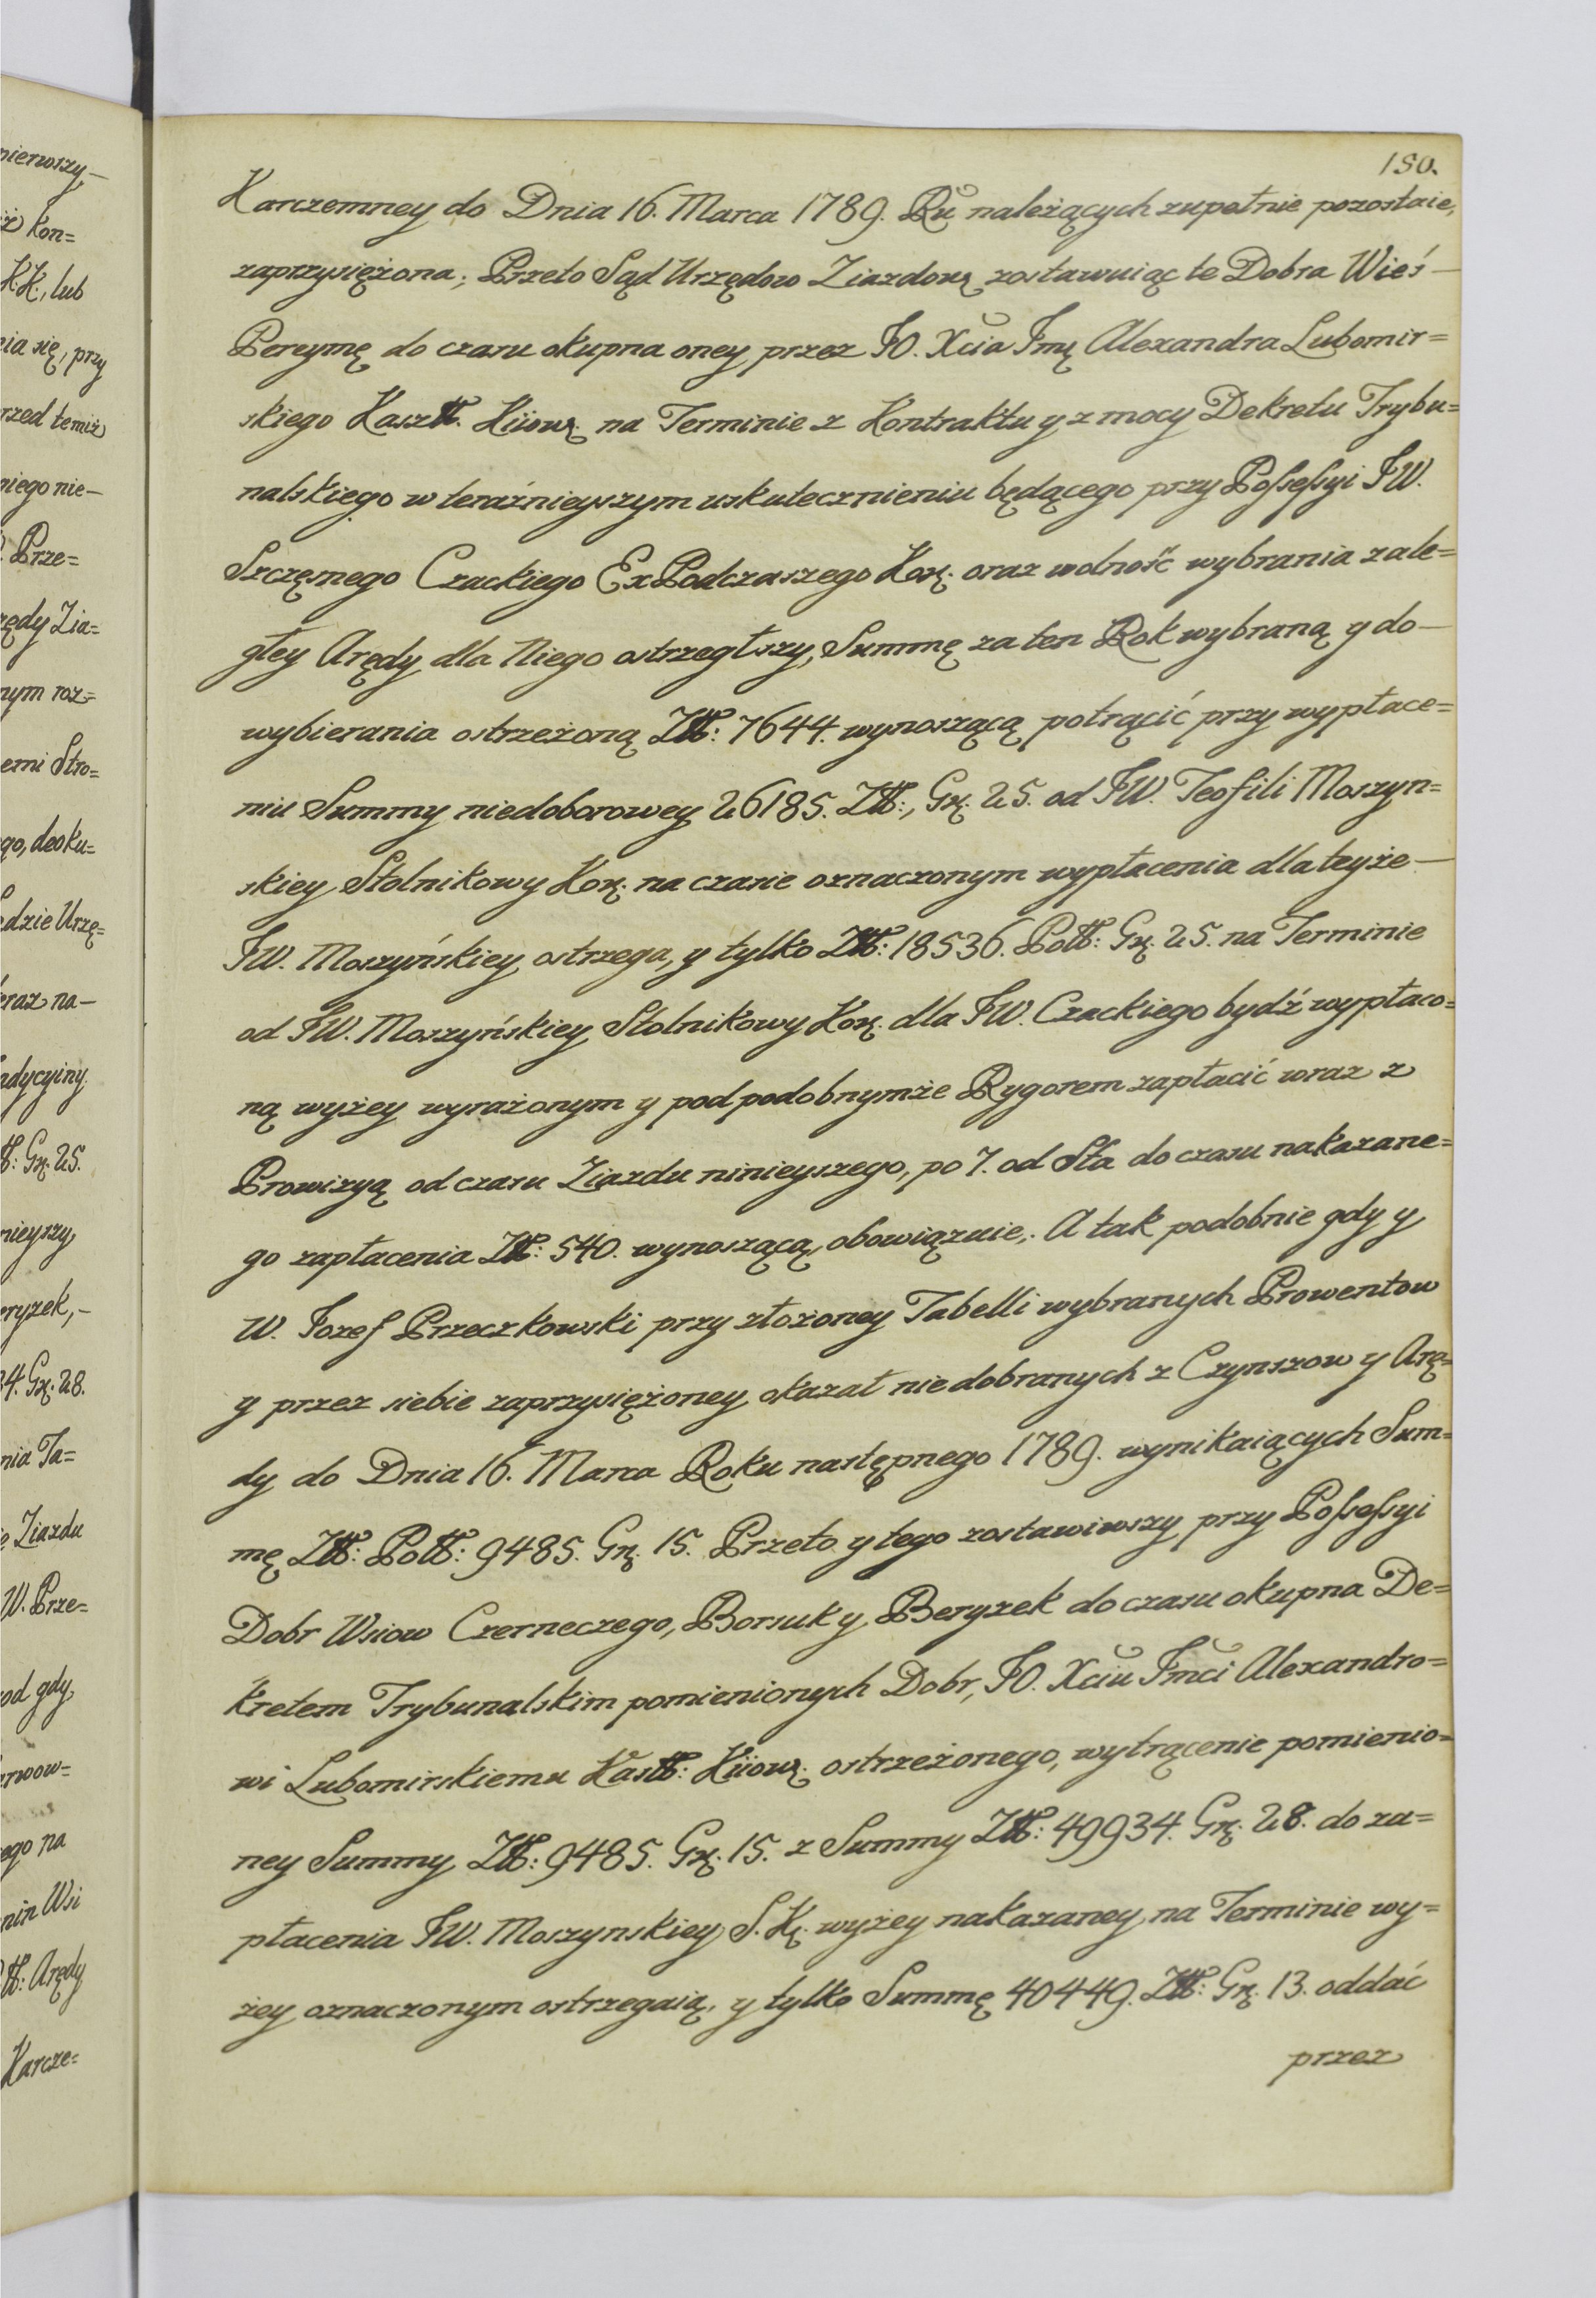 pierwszy —
ż kon=
K.K., lub
nia się, przy
rzed temiż
niego nie —
W. Prze=
rzędy Zia=
nym roz=
emi Stro=
go, deoku=
ędzie Urzę=
eraz na —
adycyiny
tt: Gr. 25.
nieyszy
eryzek, —
34. Gr. 28.
nia Ta=
ie Ziazdu
W. Prze=
od gdy
rwow=
ego na
nin Wsi
tt: Arędy
Karcze=
150.
Karczemney do Dnia 16. Marca 1789. Ru należących zupełnie pozostaie,
zaprzysiężona; Przeto Sąd Urzędow Ziazdowy zostawuiąc te Dobra Wieś —
Pereymę do czasu okupna oney przez JO. Xcia Jmę Alexandra Lubomir=
skiego Kasztt. Kiiows. na Terminie z Kontraktu y z mocy Dekretu Trybu=
nalskiego w teraźnieyszym uskutecznieniu będącego przy Possessyi JW.
Szczęsnego Czackiego Ex Podczaszego Kor. oraz wolność wybrania zale=
głey Arędy dla Niego ostrzegłszy, Summę za ten Rok wybraną y do —
wybierania ostrzeżoną Ztt: 7644. wynoszącą potrącić przy wypłace=
niu Summy niedoborowey 26185. Ztt:, Gr. 25. od JW. Teofili Moszyn=
skiey Stolnikowy Kor. na czasie oznaczonym wypłacenia dla teyże —
JW. Moszyńskiey ostrzega, y tylko Ztt: 18536. Poltt: Gr. 25. na Terminie
od JW. Moszyńskiey Stolnikowy Kor. dla JW. Czackiego bydź wypłaco=
ną wyżey wyrażonym y pod podobnymże Rygorem zapłacić wraz z
Prowizyą od czasu Ziazdu ninieyszego, po 7. od Sta do czasu nakazane=
go zapłacenia Ztt: 540. wynoszącą, obowiązuie. A tak podobnie gdy y
W. Jozef Przeczkowski przy złożoney Tabelli wybranych Prowentow
y przez siebie zaprzysiężoney okazał niedobranych z Czynszow y Arę=
dy do Dnia 16. Marca Roku następnego 1789. wynikaiących Sum=
mę Ztt: Poltt: 9485. Gr. 15. Przeto y tego zostawiwszy przy Possessyi
Dobr Wsiow Czerneczego, Borsuk y Beryzek do czasu okupna De=
kretem Trybunalskim pomienionych Dobr, JO. Xciu Jmci Alexandro=
wi Lubomirskiemu Kasztt: Kiiows. ostrzeżonego, wytrącenie pomienio=
ney Summy Ztt: 9485. Gr. 15. z Summy Ztt: 49934. Gr. 28. do za=
płacenia JW. Moszynskiey S. K. wyżey nakazaney na Terminie wy=
żey oznaczonym ostrzegaią, y tylko Summę 40449. Ztt: Gr. 13. oddać
przez